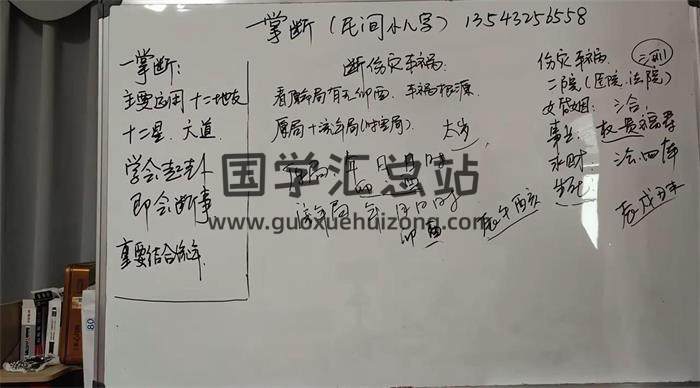 一掌断(民间小八字) 13543256558
一掌断:
主要运用十二地支
十二星、六道
学会起卦
即会断事
重要结合流年
断伤灾车祸
看原命局有无卯酉、车祸根源
原局+流年局(时空局) 太岁
年日月时
流年局 年月日时
卯酉
辰午酉亥
伤灾车祸 三刑
二院(医院、法院)
女婚姻: 三合
事业: 权贵福寿
求财: 三合四库
辰戌丑未
国学汇总站
www.guoxuehuizong.com
80